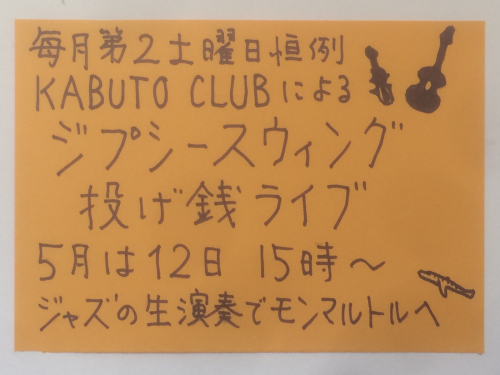 毎月第2土曜日恒例
KABUTO CLUBによる
ジプシースウィング
投げ銭ライブ
5月は12日 15時〜
ジャズの生演奏でモンマルトルへ